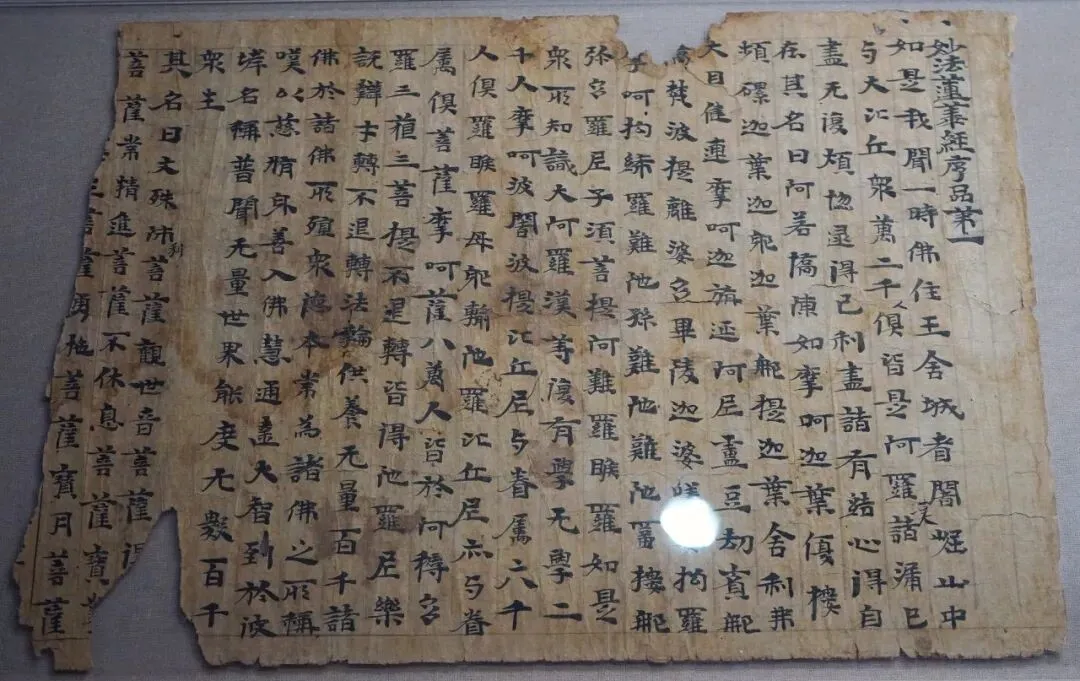 妙法蓮華經序品第一
如是我聞一時佛住王舍城耆闍崛山中
与大比丘衆萬二千人俱皆是阿羅漢諸漏已
盡无復煩惱逮得己利盡諸有結心得自
在其名曰阿若憍陳如摩呵迦葉優樓
頻螺迦葉迦耶迦葉那提迦葉舍利弗
大目揵連摩呵迦旃延阿尼盧豆劫賓那
梵波提離婆多畢陵迦婆蹉拘羅
呵拘絺羅難陁孫難陁難陁富樓那
弥多羅尼子須菩提阿難羅睺羅如是
衆所知識大阿羅漢等復有學无學二
千人摩呵波闍波提比丘尼与眷属六千
人俱羅睺羅母耶輸陁羅比丘尼亦与眷
属俱菩薩摩呵薩八萬人皆於阿耨多
羅三藐三菩提不退轉皆得陁羅尼樂
說辯才轉不退轉法輪供養无量百千諸
佛於諸佛所殖衆德本常為諸佛之所稱
嘆以慈脩身善入佛慧通達大智到於彼
岸名稱普聞无量世界能度无數百千
衆生
其名曰文殊師利菩薩觀世音菩薩得
菩薩常精進菩薩不休息菩薩寶
菩薩勇施菩薩寶月菩薩